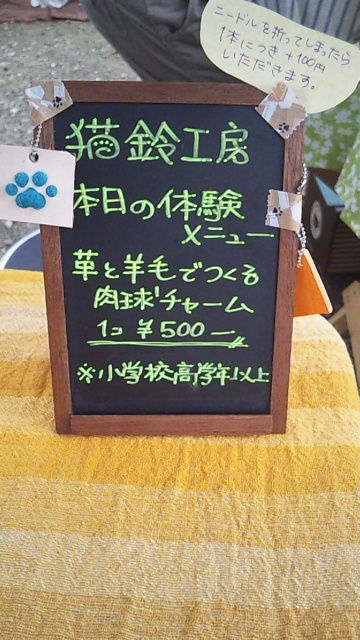 ニードルを折ってしまったら
1本につき+100円
いただきます。
猫鈴工房
本日の体験
メニュー
革と羊毛でつくる
肉球チャーム
1コ ¥500ー
※小学校高学年以上